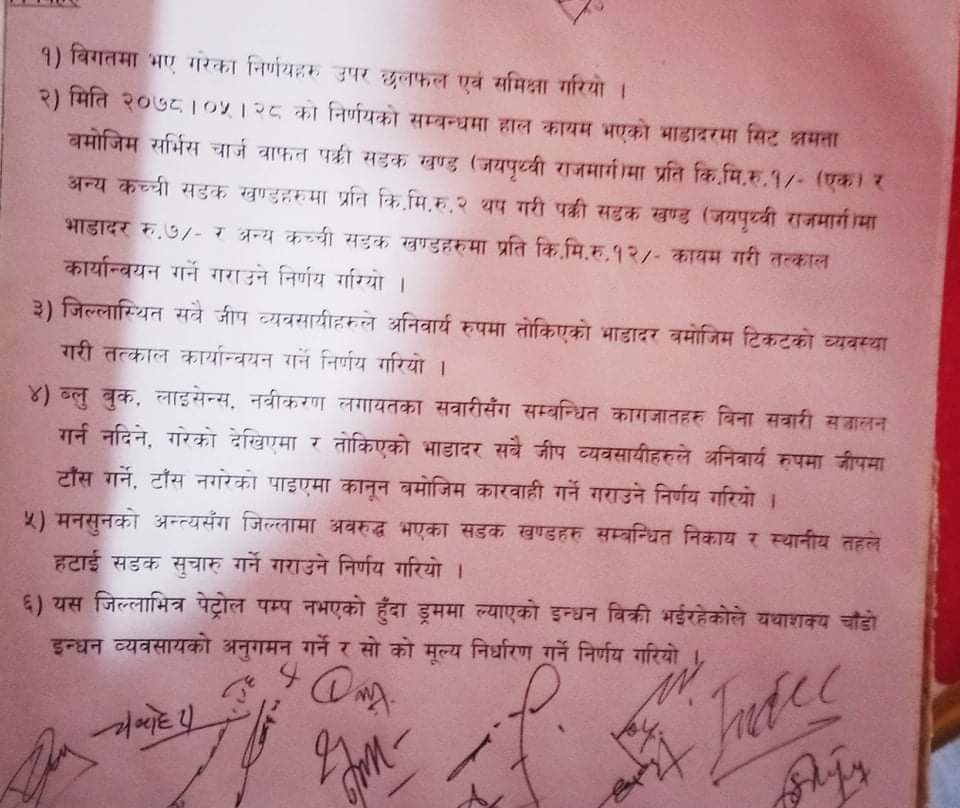 १) बिगतमा भए गरेका निर्णयहरु उपर छलफल एवं समिक्षा गरियो ।
२) मिति २०७८।०५।२८ को निर्णयको सम्बन्धमा हाल कायम भएको भाडादरमा सिट क्षमता
बमोजिम सर्भिस चार्ज वाफत पक्की सडक खण्ड (जयपृथ्वी राजमार्ग)मा प्रति कि.मि.रु.१/- (एक) र
अन्य कच्ची सडक खण्डहरुमा प्रति कि.मि.रु.२ थप गरी पक्की सडक खण्ड (जयपृथ्वी राजमार्ग)मा
भाडादर रु.७/- र अन्य कच्ची सडक खण्डहरुमा प्रति कि.मि.रु.१२/- कायम गरी तत्काल
कार्यान्वयन गर्ने गराउने निर्णय गरियो ।
३) जिल्लास्थित सबै जीप व्यवसायीहरुले अनिवार्य रुपमा तोकिएको भाडादर बमोजिम टिकटको व्यवस्था
गरी तत्काल कार्यान्वयन गर्ने निर्णय गरियो ।
४) ब्लु बुक, लाइसेन्स, नवीकरण लगायतका सवारीसँग सम्बन्धित कागजातहरु बिना सवारी सञ्चालन
गर्न नदिने, गरेको देखिएमा र तोकिएको भाडादर सबै जीप व्यवसायीहरुले अनिवार्य रुपमा जीपमा
टाँस गर्ने, टाँस नगरेको पाइएमा कानून बमोजिम कारवाही गर्ने गराउने निर्णय गरियो ।
५) मनसुनको अन्त्यसँग जिल्लामा अवरुद्ध भएका सडक खण्डहरु सम्बन्धित निकाय र स्थानीय तहले
हटाई सडक सुचारु गर्ने गराउने निर्णय गरियो ।
६) यस जिल्लाभित्र पेट्रोल पम्प नभएको हुँदा ड्रममा ल्याएको इन्धन बिक्री भईरहेकोले यथाशक्य चाँडो
इन्धन व्यवसायको अनुगमन गर्ने र सो को मूल्य निर्धारण गर्ने निर्णय गरियो ।